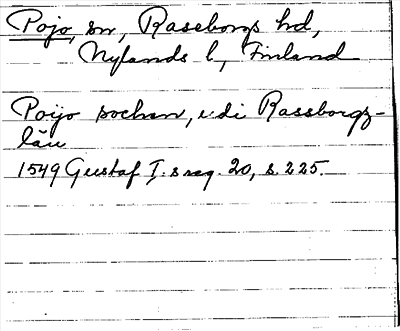 Pojo, sn, Raseborgs hd,
Nylands l, Finland
Poijo sochen, udi Rassborgz-
län
1549 Gustaf I.s reg. 20, s. 225.